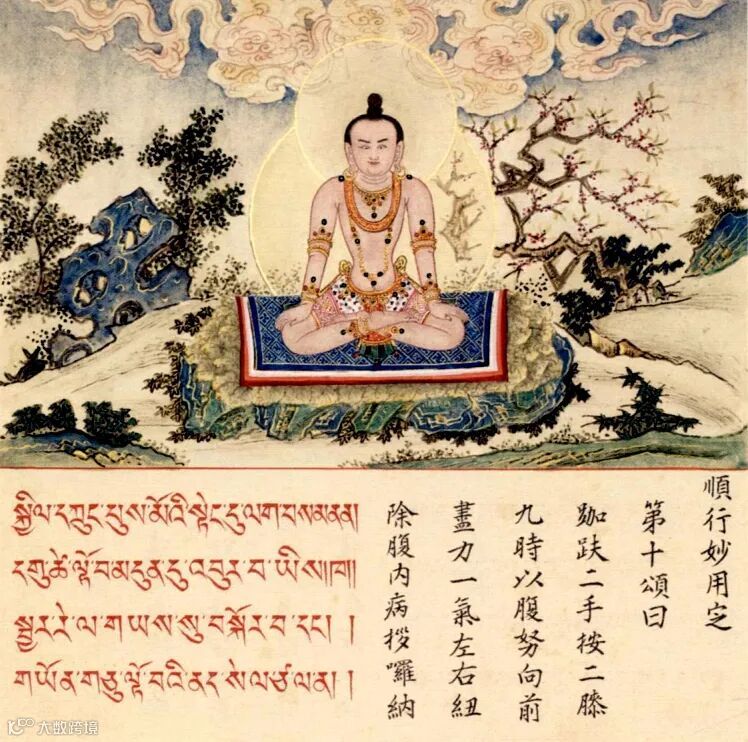 སྐྱིལ་དཀྲུང་པུས་མོའི་སྟེང་དུ་ལག་པས་མནན།
དགུ་ཚེ་ལྟོ་བ་མདུན་དུ་འབུར་བ་ཡིས།
རེ་ལ་གཡས་སུ་བསྐོར་བ་དང། །
གཡོན་གཅུ་ལྟོ་བའི་ནད་སེལ་
順行妙用定
第十頌曰
跏趺二手按二膝
九時以腹努向前
盡力一氣左右紐
除腹內病拶囉納
大数跨境